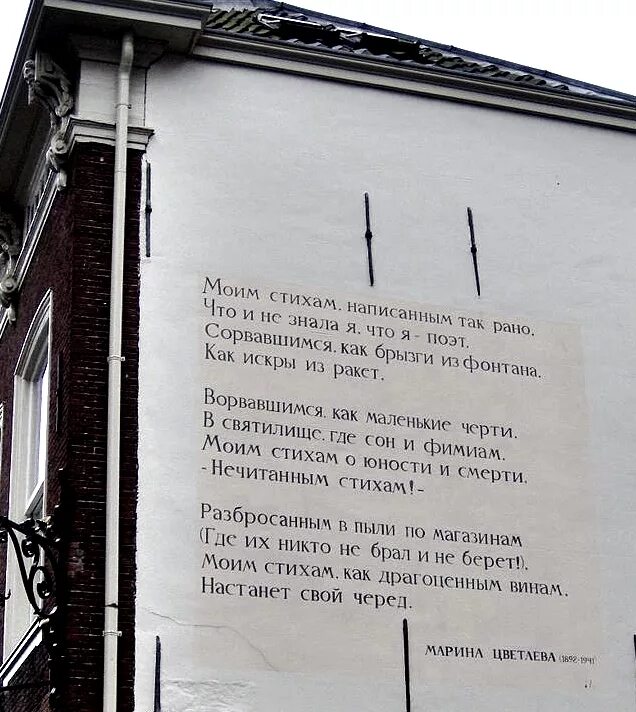 Моим стихам, написанным так рано,
Что и не знала я, что я - поэт,
Сорвавшимся, как брызги из фонтана,
Как искры из ракет,
Ворвавшимся, как маленькие черти,
В святилище, где сон и фимиам,
Моим стихам о юности и смерти,
- Нечитанным стихам! -
Разбросанным в пыли по магазинам
(Где их никто не брал и не берет!),
Моим стихам, как драгоценным винам,
Настанет свой черед.
МАРИНА ЦВЕТАЕВА (1892-1941)